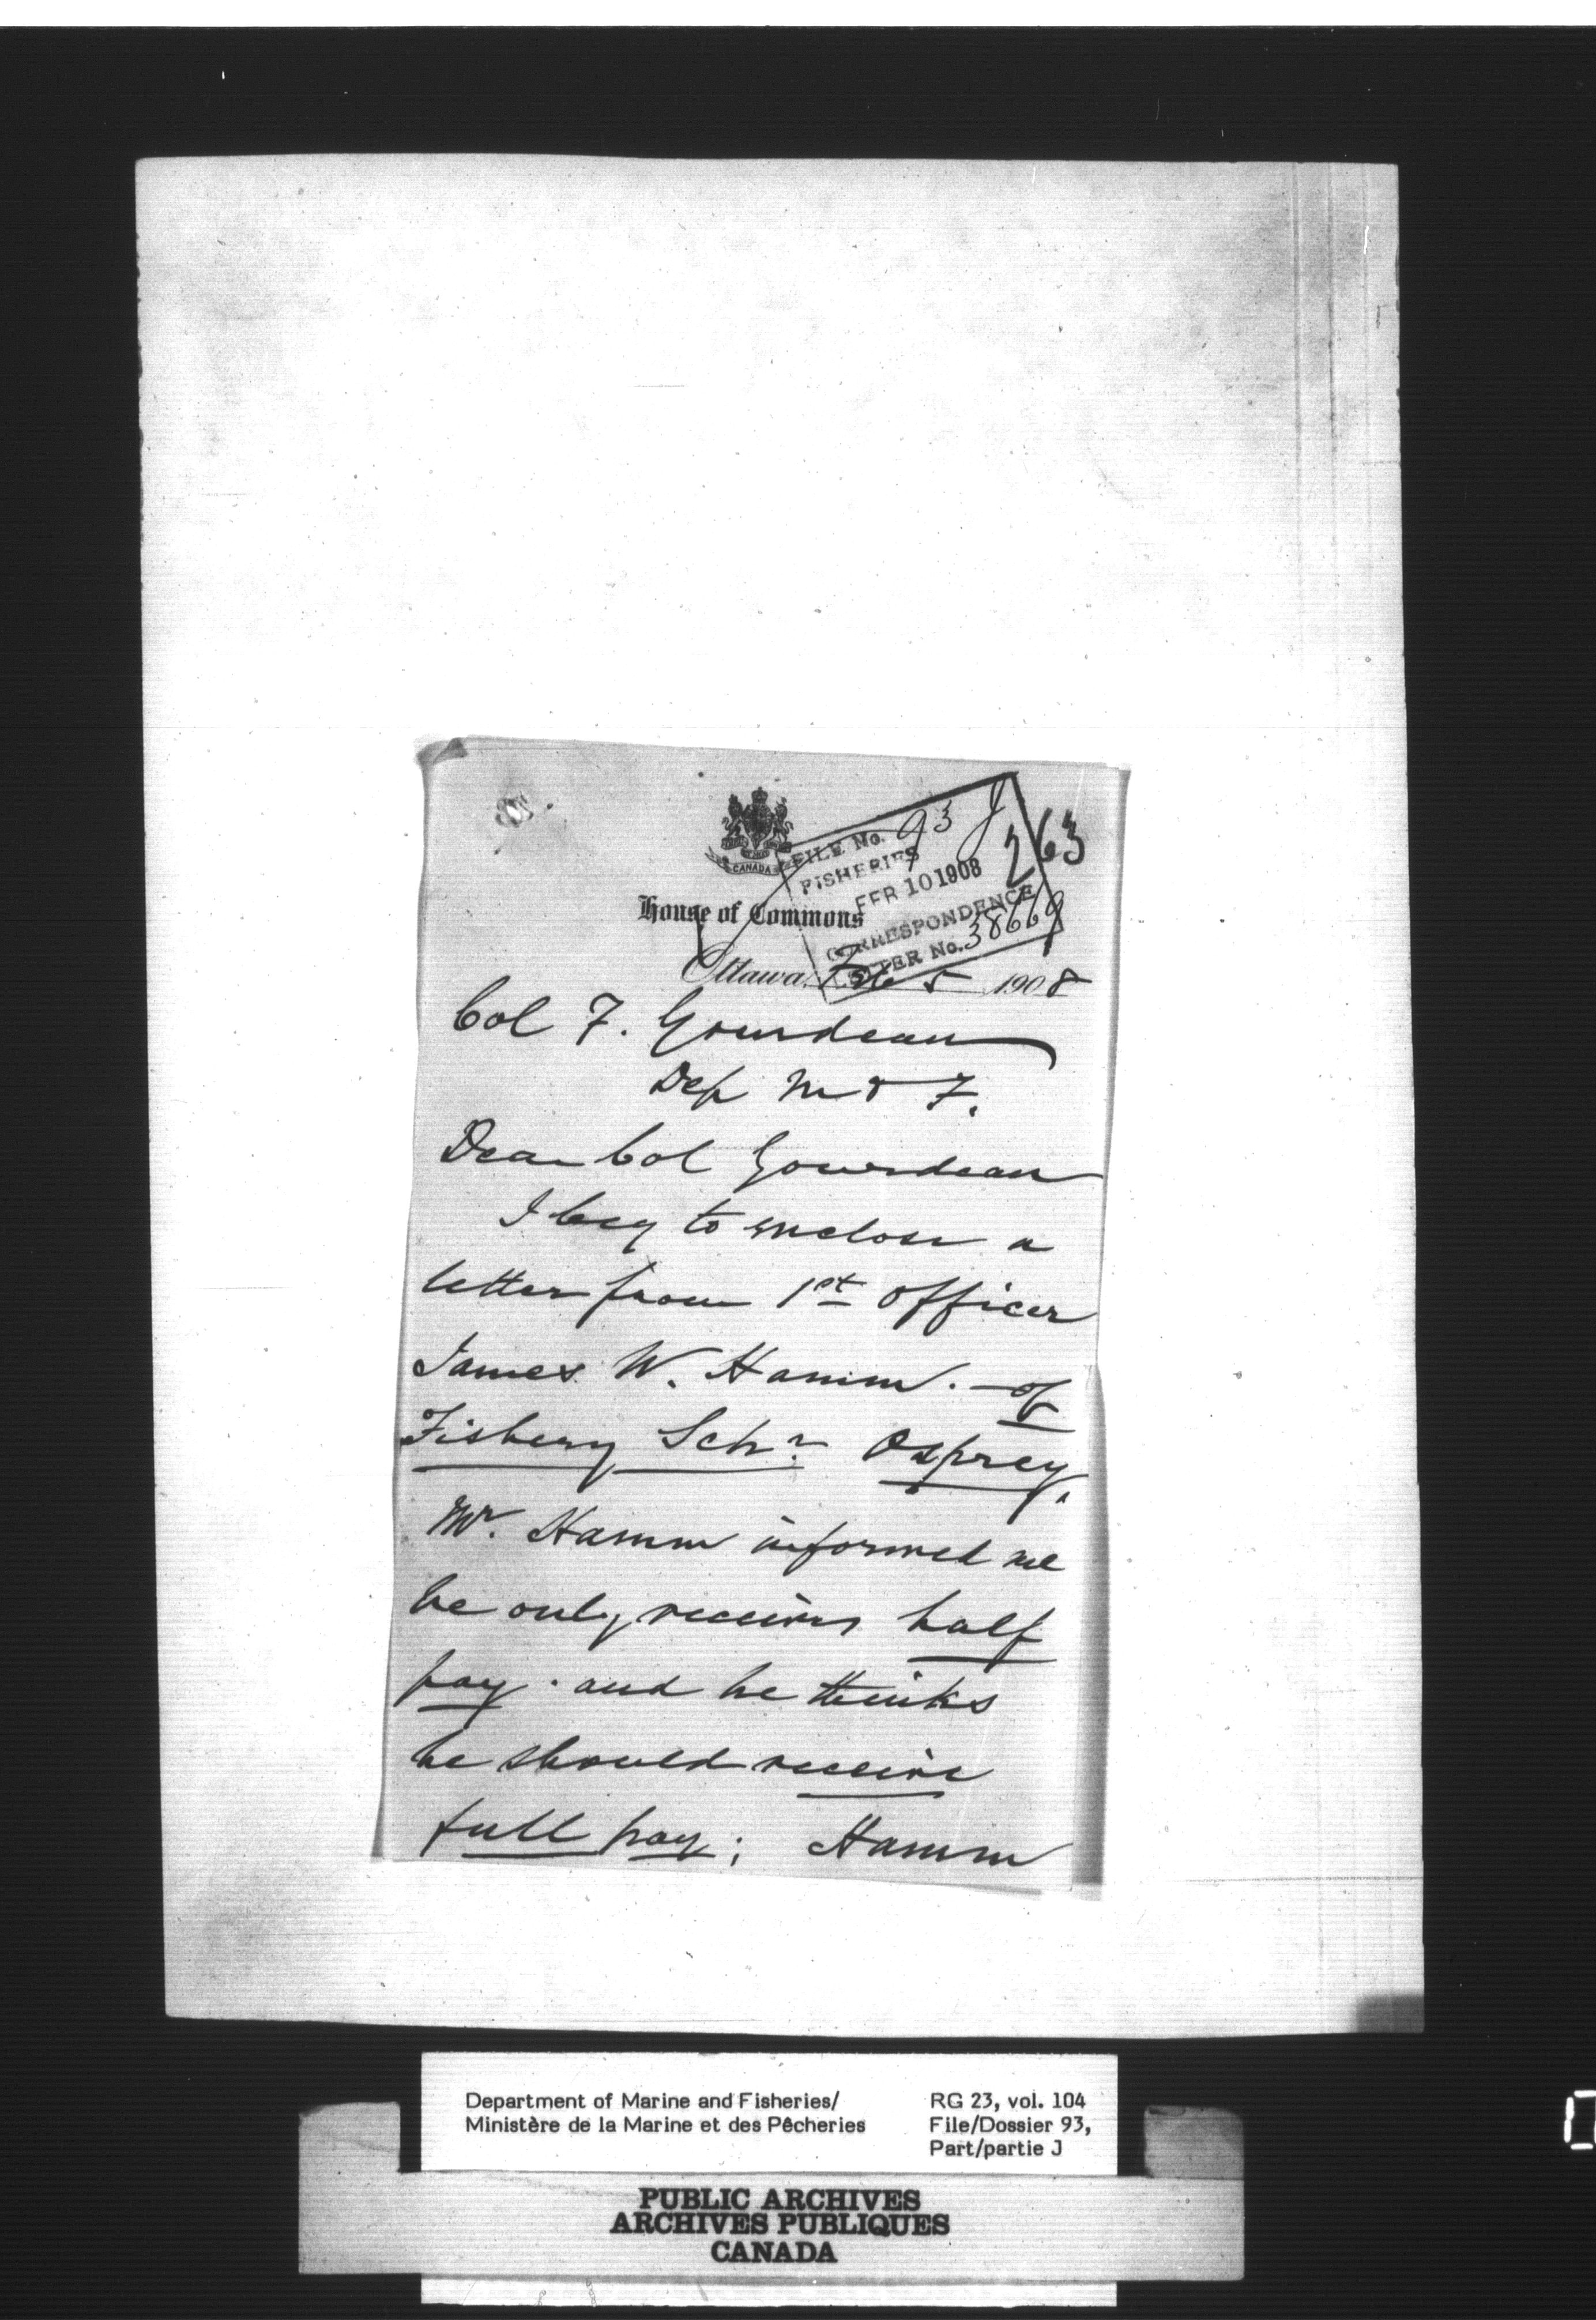 CANADA
FILE No. 93 J
263
FISHERIES
FEB 10 1908
CORRESPONDENCE
LETTER No. 38669
House of Commons
Ottawa, Feb 5 1908
Col F. Gourdeau
Dep M & F.
Dear Col Gourdeau
I beg to enclose a
letter from 1st officer
James W. Hamm. - of
Fishery Schr Osprey.
Mr. Hamm informed me
he only receives half
pay. and he thinks
he should receive
full pay; Hamm
Department of Marine and Fisheries/
Ministère de la Marine et des Pêcheries
RG 23, vol. 104
File/Dossier 93,
Part/partie J
PUBLIC ARCHIVES
ARCHIVES PUBLIQUES
CANADA